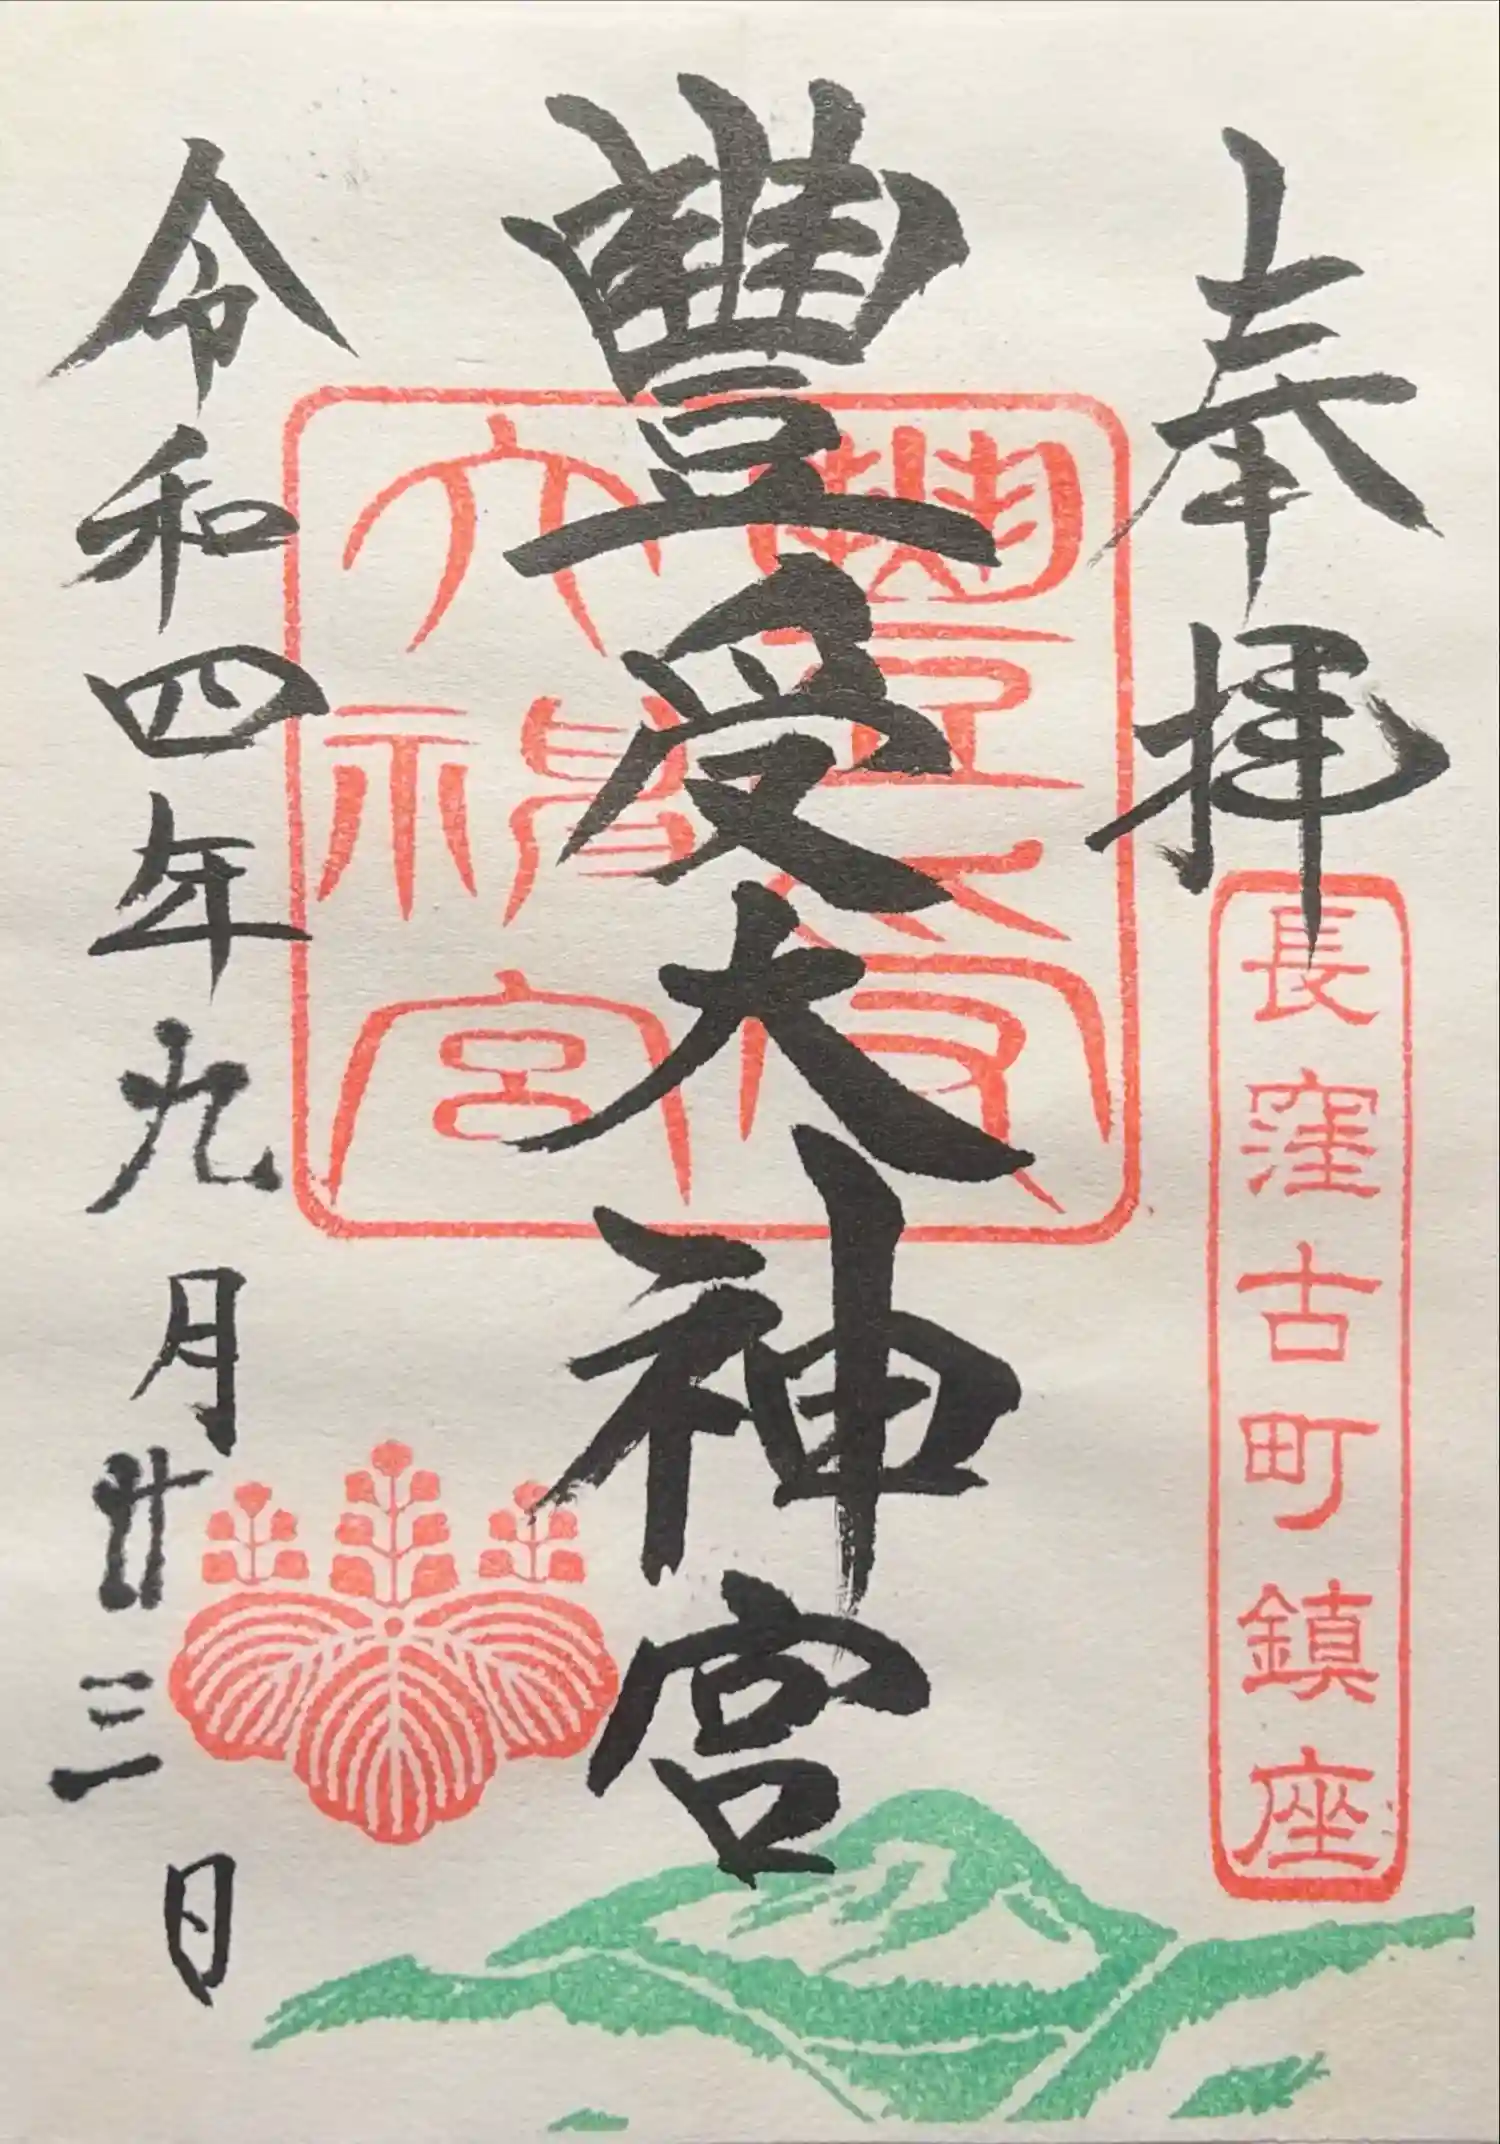 奉拝
長窪古町鎮座
豐受大神宮
豐受大神宮
令和四年九月廿三日